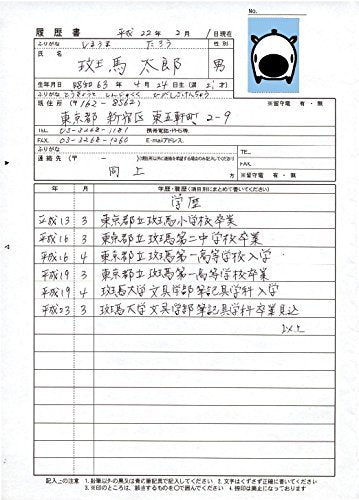 履歴書 平成 22年 2月 1日現在
ふりがな しまうま たろう 性別
氏名 斑馬 太郎 男
生年月日 昭和63年 4月 24日生 (満21才)
ふりがな とうきょうと しんじゅくく ひがしごけんちょう
現住所 (〒162-8562) ※留守電 有・無
東京都 新宿区 東五軒町 2-9
TEL. 03-3268-1181 携帯電話・PHS等.
FAX. 03-3268-1260 E-mailアドレス.
ふりがな TEL.
連絡先 (〒 - ) (現住所以外に連絡を希望する場合のみ記入してください) FAX.
同上 ※留守電 有・無
年 月 学歴・職歴 (項目別にまとめて書いてください)
学歴
平成13 3 東京都立斑馬小学校卒業
平成16 3 東京都立斑馬第二中学校卒業
平成16 4 東京都立斑馬第一高等学校入学
平成19 3 東京都立斑馬第一高等学校卒業
平成19 4 斑馬大学文具学部筆記具学科入学
平成23 3 斑馬大学文具学部筆記具学科卒業見込
以上
記入上の注意 1.鉛筆以外の黒又は青の筆記具で記入してください 2.文字はくずさず正確に書いてください
3.※印のところは、該当するものを○で囲んでください 4.捺印は廃止になっております